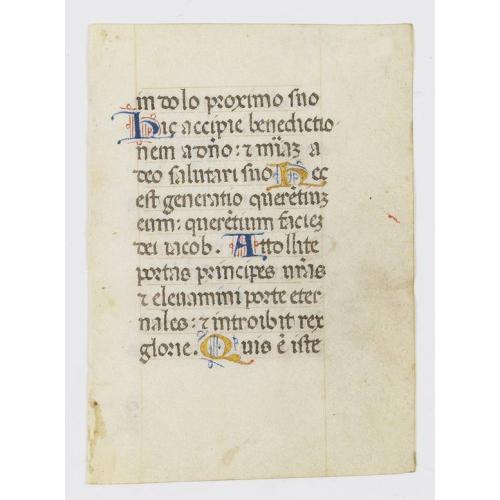 in dolo proximo suo
Hic accipie benedictio
nem a dño: ⁊ mĩaʒ a
deo salutari suo Hec
est generatio querẽtiuʒ
eum: querẽtium facieʒ
dei iacob. Attollite
portas principes vr̃as
⁊ eleuamini porte eter
nales: ⁊ introibit rex
glorie. Quis ẽ iste